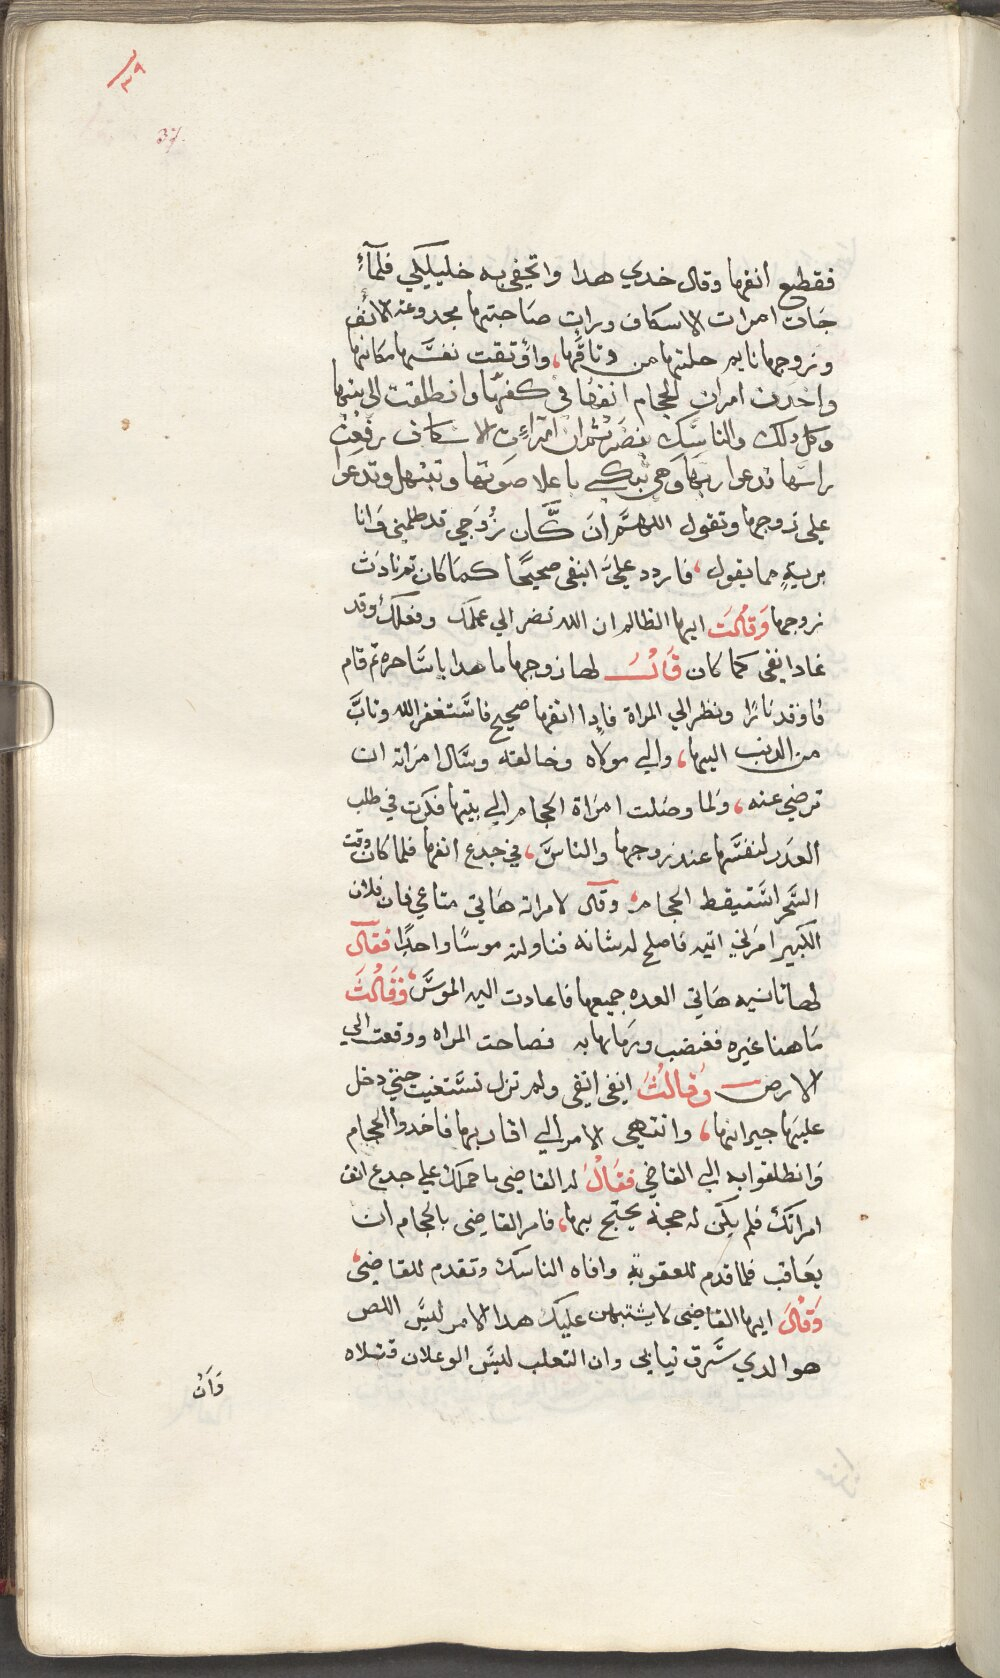 ٣٩
37
فقطع انفها وقال خدي هدا واتحفي به خليليكي فلمآءِ
جَات امرات الاسكاف ورات صَاحبتها مجدوعة الانُف
وزوجها نايم حلتها من وتاقها، واَوتقت نفسَّها مكانها
واخدت امرات الحجام انفها في كفهُا وانطلقت الي بيتها
وكل دلك والناسَّك ينضر تم ان امرآءت الاسكاف رفعت
راسَّها تدعوا ربها وهي تبكي باعلا صَوتها وتبتهل وتدعوا
علي زوجها وتقول اللهمَّ ان كَّان زُوَجي قد ظلمني وَانا
بريةٍ مما يقول، فاردد عليَّ انفي صحيحًا كمَا كان تم نادَت
زوجها وَقالَت ايها الظالم ان الله نضر الي عملك وفعلك وقد
عادا نفي كما كان قَالَ لها زوجها ما هدا ياسَّاحره تم قام
فاوقد نارًا ونظر الي المراة فادا انفها صحيح فاسَّتغفر الله وتابَّ
من الدنب اليها، والي مولاه وخالقه وسَّال امرَاته ان
ترضي عنه، وَلما وصَلت امرَاة الحجام الي بيتها فكرت في طلب
العدَر لنفسَّها عند زوجها والناسَّ، في جدع انفها فلما كان وقت
السَّحر اسَّتيقط الحجام، وقال لامراته هَاتي متاعي فان فلان
الكبير امرَني اتيه فاصلح له شانه فناولته موسًا واحدًا فقال
لها تانسيه هَاتي العده جميعها فاعادت اليه الموسَّ، وَقَالتَ
مَا هنا غيره فغضب ورمَاها به فصاحت المراه ووقعت الي
الارض وَقالتُ انفي انفي ولم تزل تسَّتغيت حتي دخل
عليَها جيرانها، وانتهي الامر الي اقاربها فاخدوا الحجام
وَانطلقوا به الي القاضي فقَالُ له القاضي ما حملك علي جدع انف
امراتك فلم يكن له حجة يحتج بها، فامر القاضي بالحجام ان
يعَاقب فلما قدم للعقوبة وافاه الناسك وتقدم للقاضي،
وَقالَ ايها القاضي لا يشتبهن عليك هدا الامر ليسَّ اللص
هو الدي سَّرق تيابي وان التعلب ليسَّ الوعلان قتلاه
وَاَن